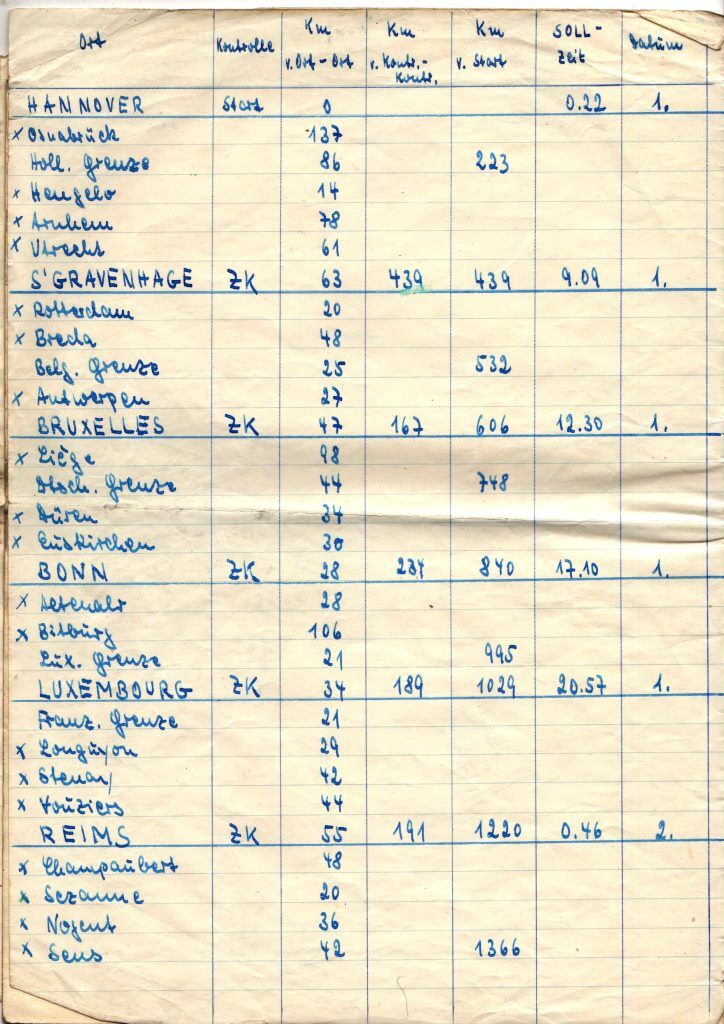 Ort Kontrolle Km v. Ort - Ort Km v. Kontr.- Kontr. Km v. Start SOLL- Zeit Datum
HANNOVER Start 0 0.22 1.
x Osnabrück 137
Holl. Grenze 86 223
x Hengelo 14
x Arnhem 78
x Utrecht 61
S'GRAVENHAGE ZK 63 439 439 9.09 1.
x Rotterdam 20
x Breda 48
Belg. Grenze 25 532
x Antwerpen 27
BRUXELLES ZK 47 167 606 12.30 1.
x Liège 98
Dtsch. Grenze 44 748
x Düren 34
x Euskirchen 30
BONN ZK 28 234 840 17.10 1.
x Altenahr 28
x Bitburg 106
Lux. Grenze 21 995
LUXEMBOURG ZK 34 189 1029 20.57 1.
Franz. Grenze 21
x Longuyon 29
x Stenay 42
x Vouziers 44
REIMS ZK 55 191 1220 0.46 2.
x Champaubert 48
x Sezanne 20
x Nogent 36
x Sens 42 1366